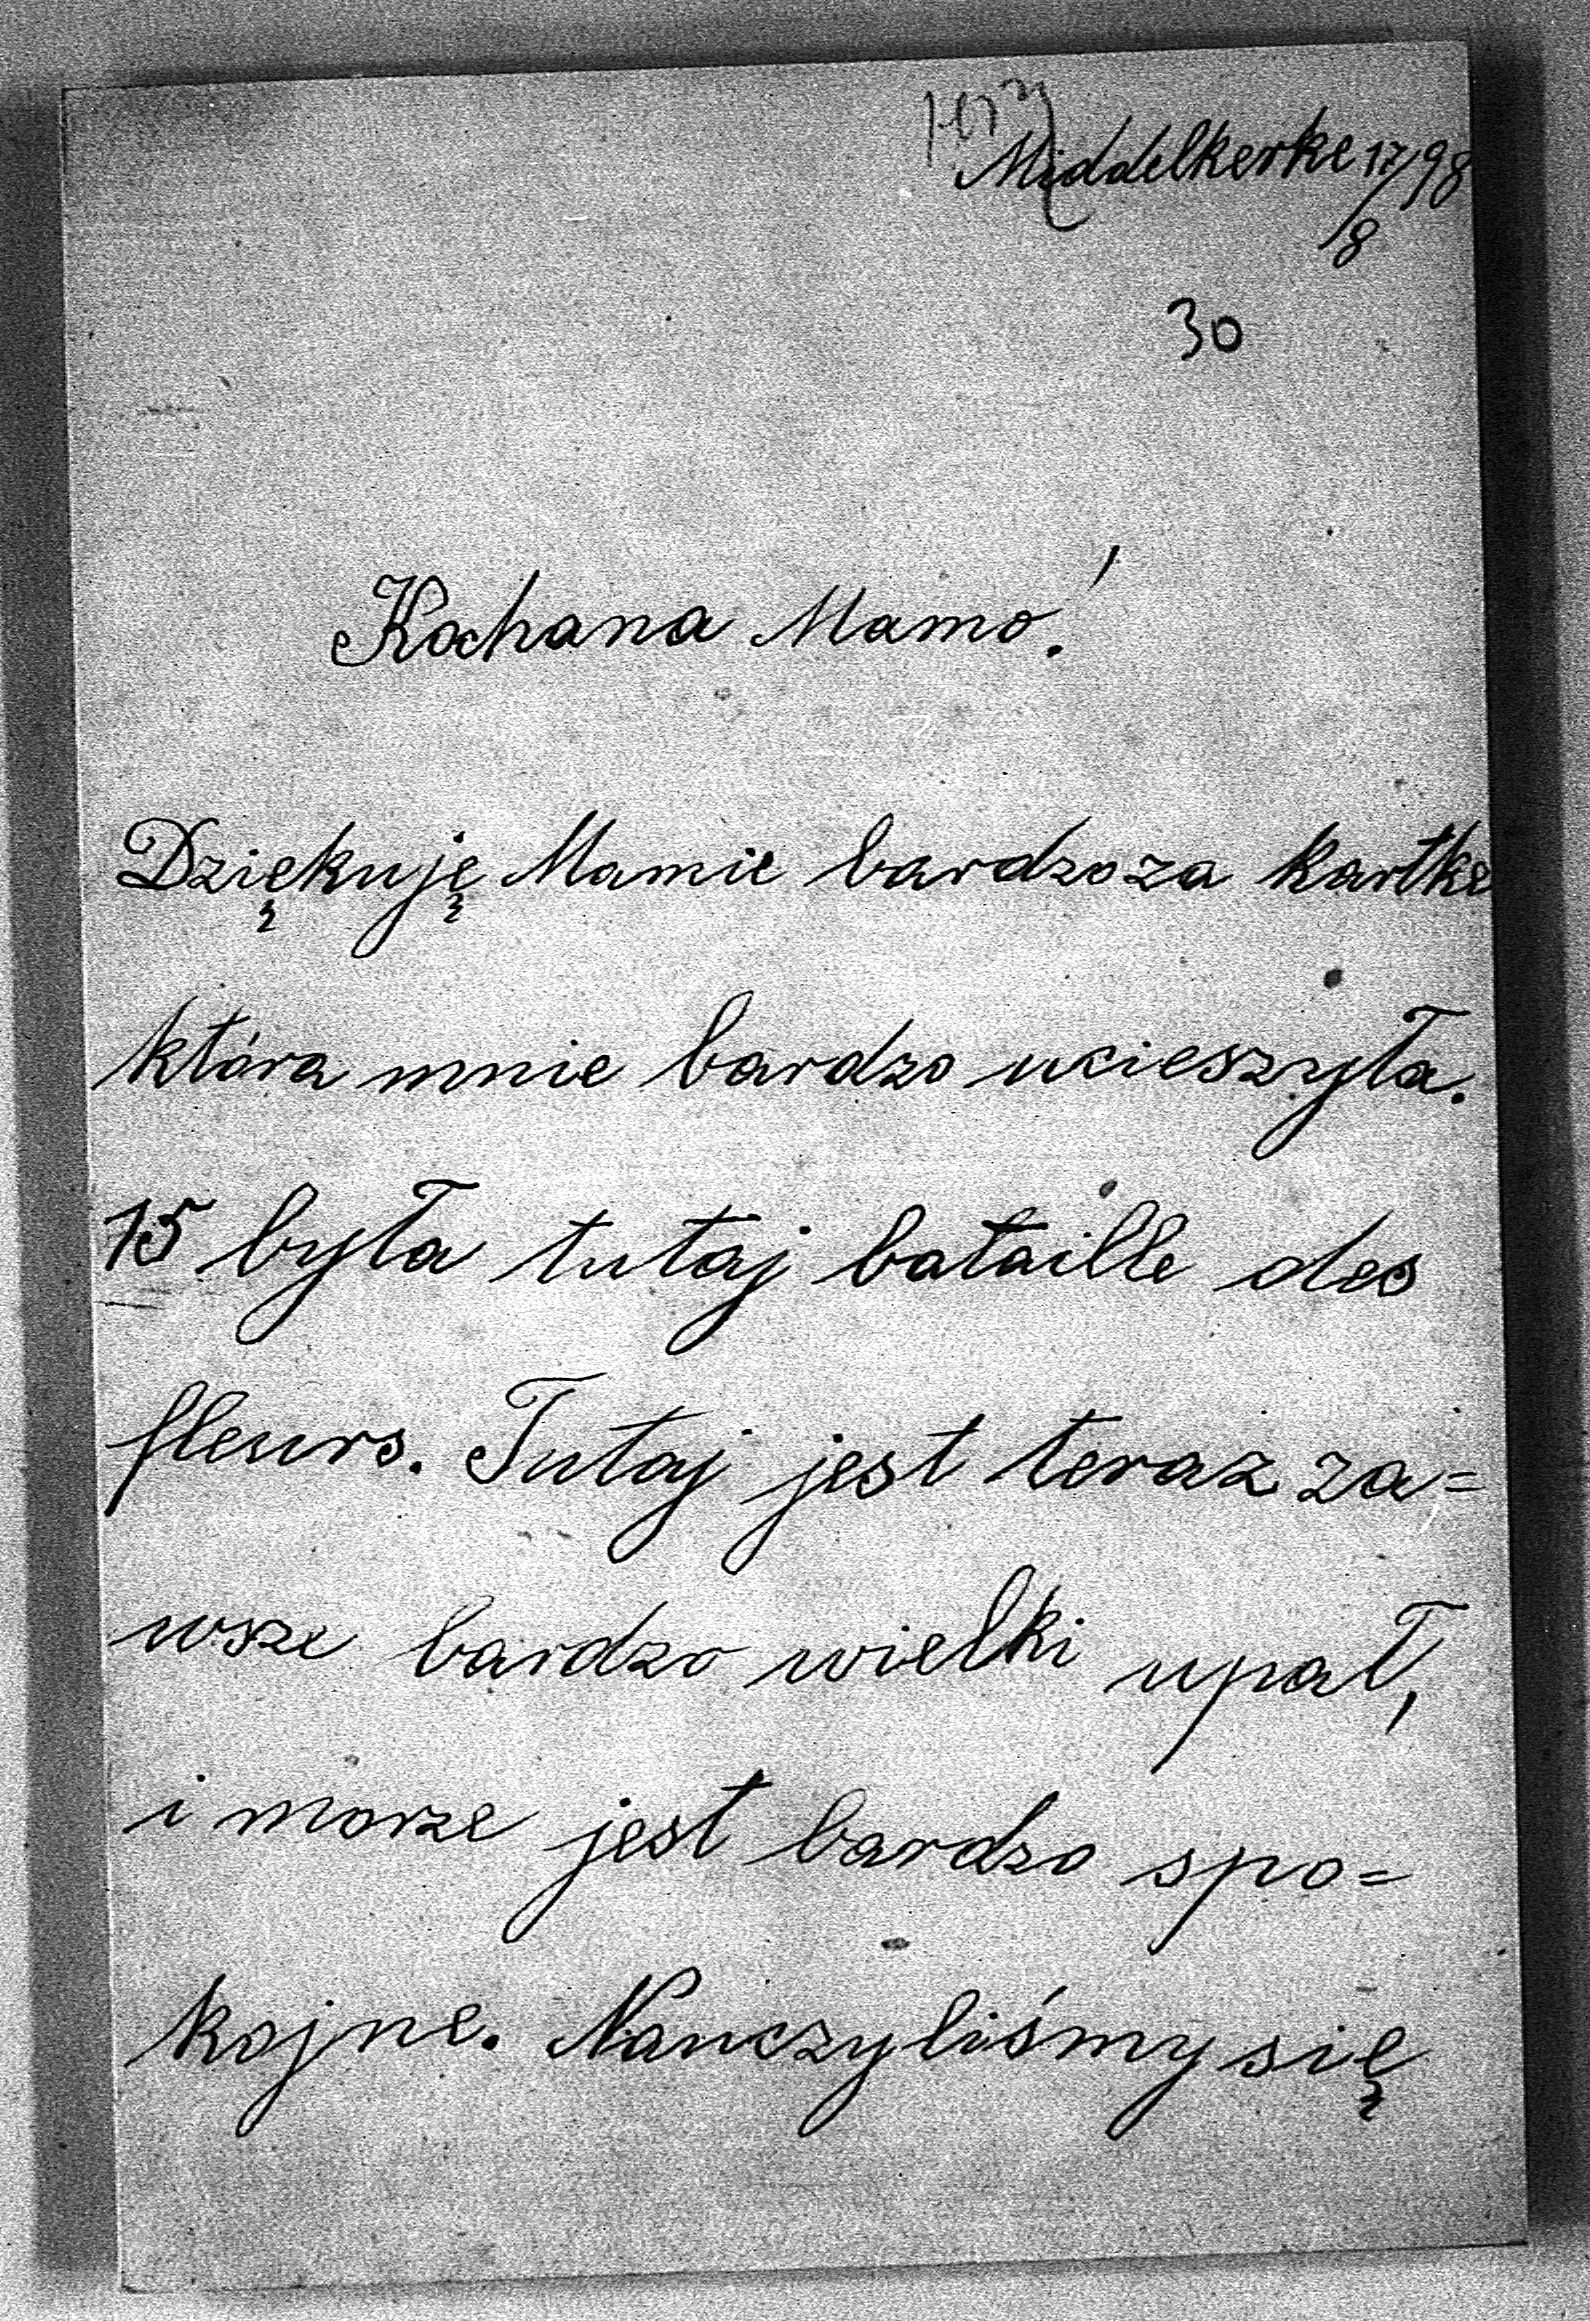 Middelkerke 17/8/98
30
Kochana Mamo!
Dziękuję Mamie bardzo za kartke
która mnie bardzo ucieszyła.
15 była tutaj bataille des
fleurs. Tutaj jest teraz za=
wsze bardzo wielki upał,
i morze jest bardzo spo=
kojne. Nauczyliśmy się